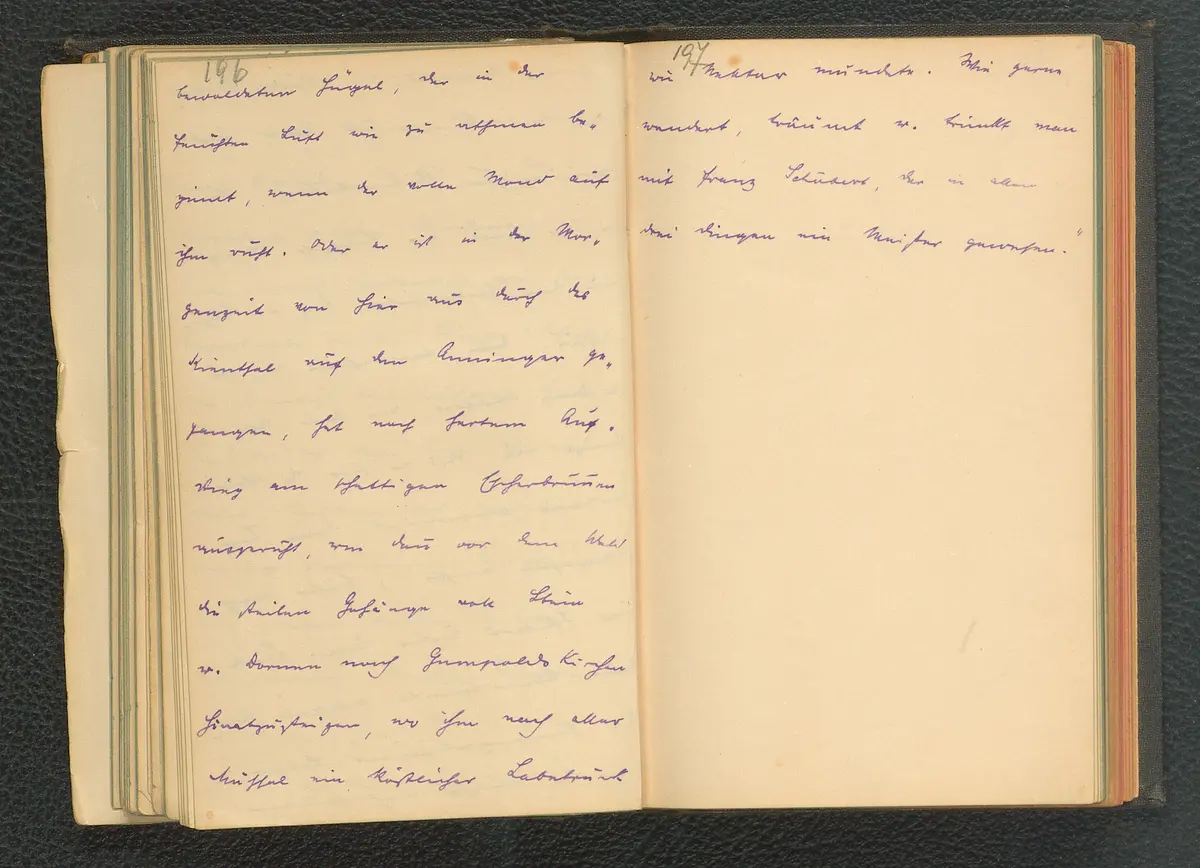 196
bewaldeten Hügel, der in der
feuchten Luft wie zu athmen be„
ginnt, wenn der volle Mond auf
ihm ruht. Oder er ist in der Mor„
genzeit von hier aus durch das
Kienthal auf den Anninger ge„
gangen, hat nach hartem Auf„
stieg am schattigen Escherbrunnen
ausgeruht, um dann vor dem Wald
die steilen Gehänge voll Stein
u. Dornen nach Gumpoldskirchen
hinabzusteigen, wo ihm nach aller
Mühsal ein köstlicher Labetrunk
197
wie Nektar mundete. Wie gerne
wandert, träumt u. trinkt man
mit Franz Schubert, der in allen
drei Dingen ein Meister gewesen."